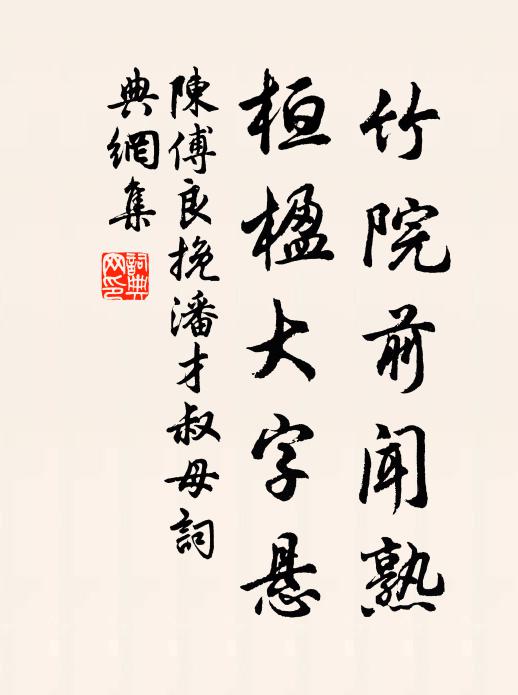 竹院前闻熟
桓楹大字悬
陳傅良挽潘才叔母詞
典網集
詞典网印